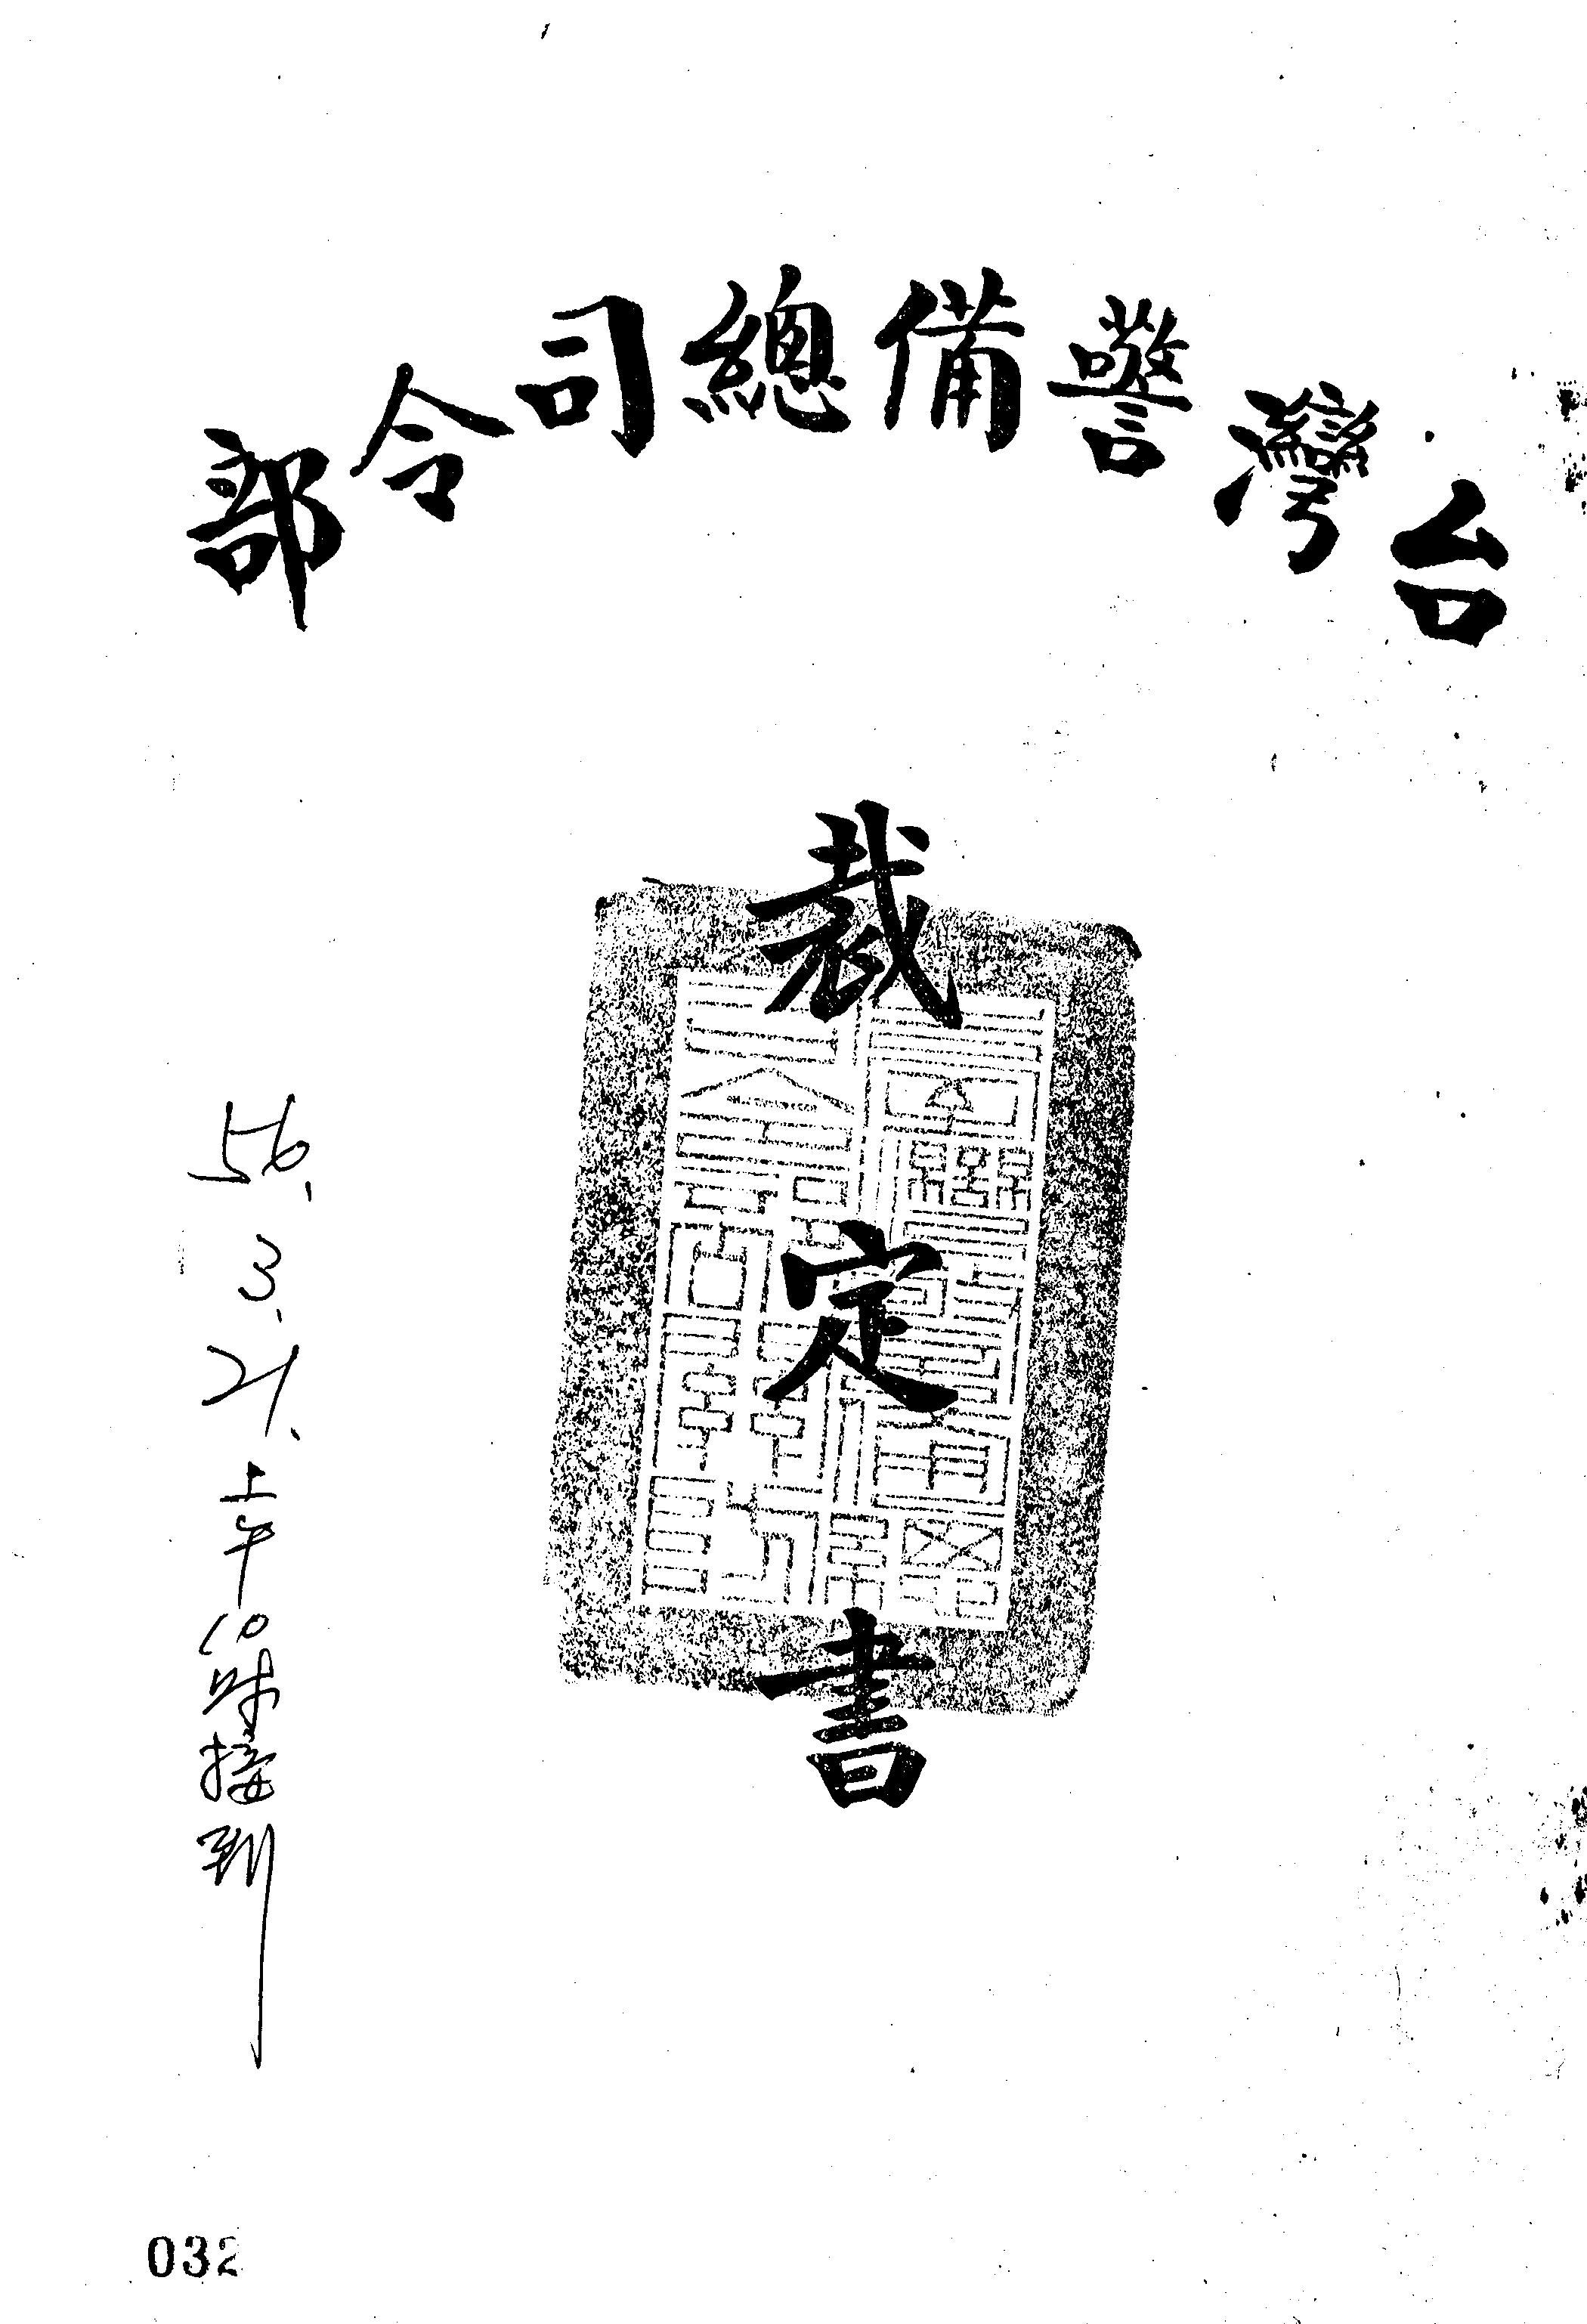 台灣警備總司令部
裁定書
56.3.21.上午10時接到
032